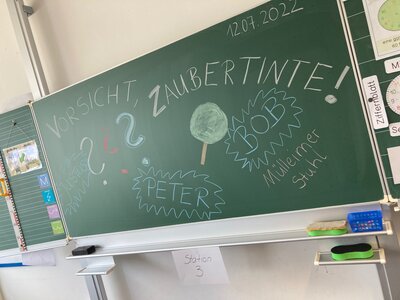 12.07.2022
VORSICHT, ZAUBERTINTE!
? ? ?
BOB
PETER
Mülleimer
Stuhl
Station
3
Zifferblatt